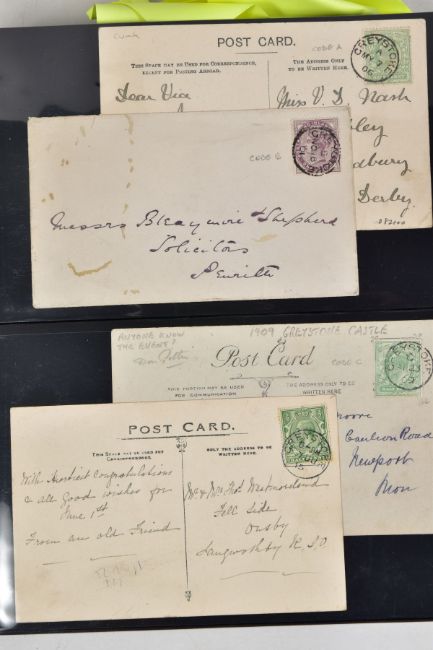 CUMB
POST CARD.
CODE A
THIS SPACE MAY BE USED FOR CORRESPONDENCE,
EXCEPT FOR PASSING ABROAD.
THE ADDRESS ONLY TO
BE WRITTEN HERE.
GREYSTOKE
Dear Vera
Miss V. D. Nash
Derby
CODE B
Messrs Bleaymire & Shepherd
Solicitors
Penrith
ANYONE KNOW
THE EVENT?
1909 GREYSTONE CASTLE
Post Card
CODE C
THIS PORTION MAY BE USED
FOR COMMUNICATION
THE ADDRESS ONLY TO BE
WRITTEN HERE
GREYSTOKE
Caerleon Road
Newport
Mon
POST CARD.
THIS SPACE MAY BE USED FOR
CORRESPONDENCE.
ONLY THE ADDRESS TO BE
WRITTEN HERE.
GREYSTOKE
With Heartiest Congratulations
& all Good wishes for
June 1st
From an old Friend
Mr & Mrs Thos Westmoreland
Fell Side
Ousby
Langwathby R.S.O